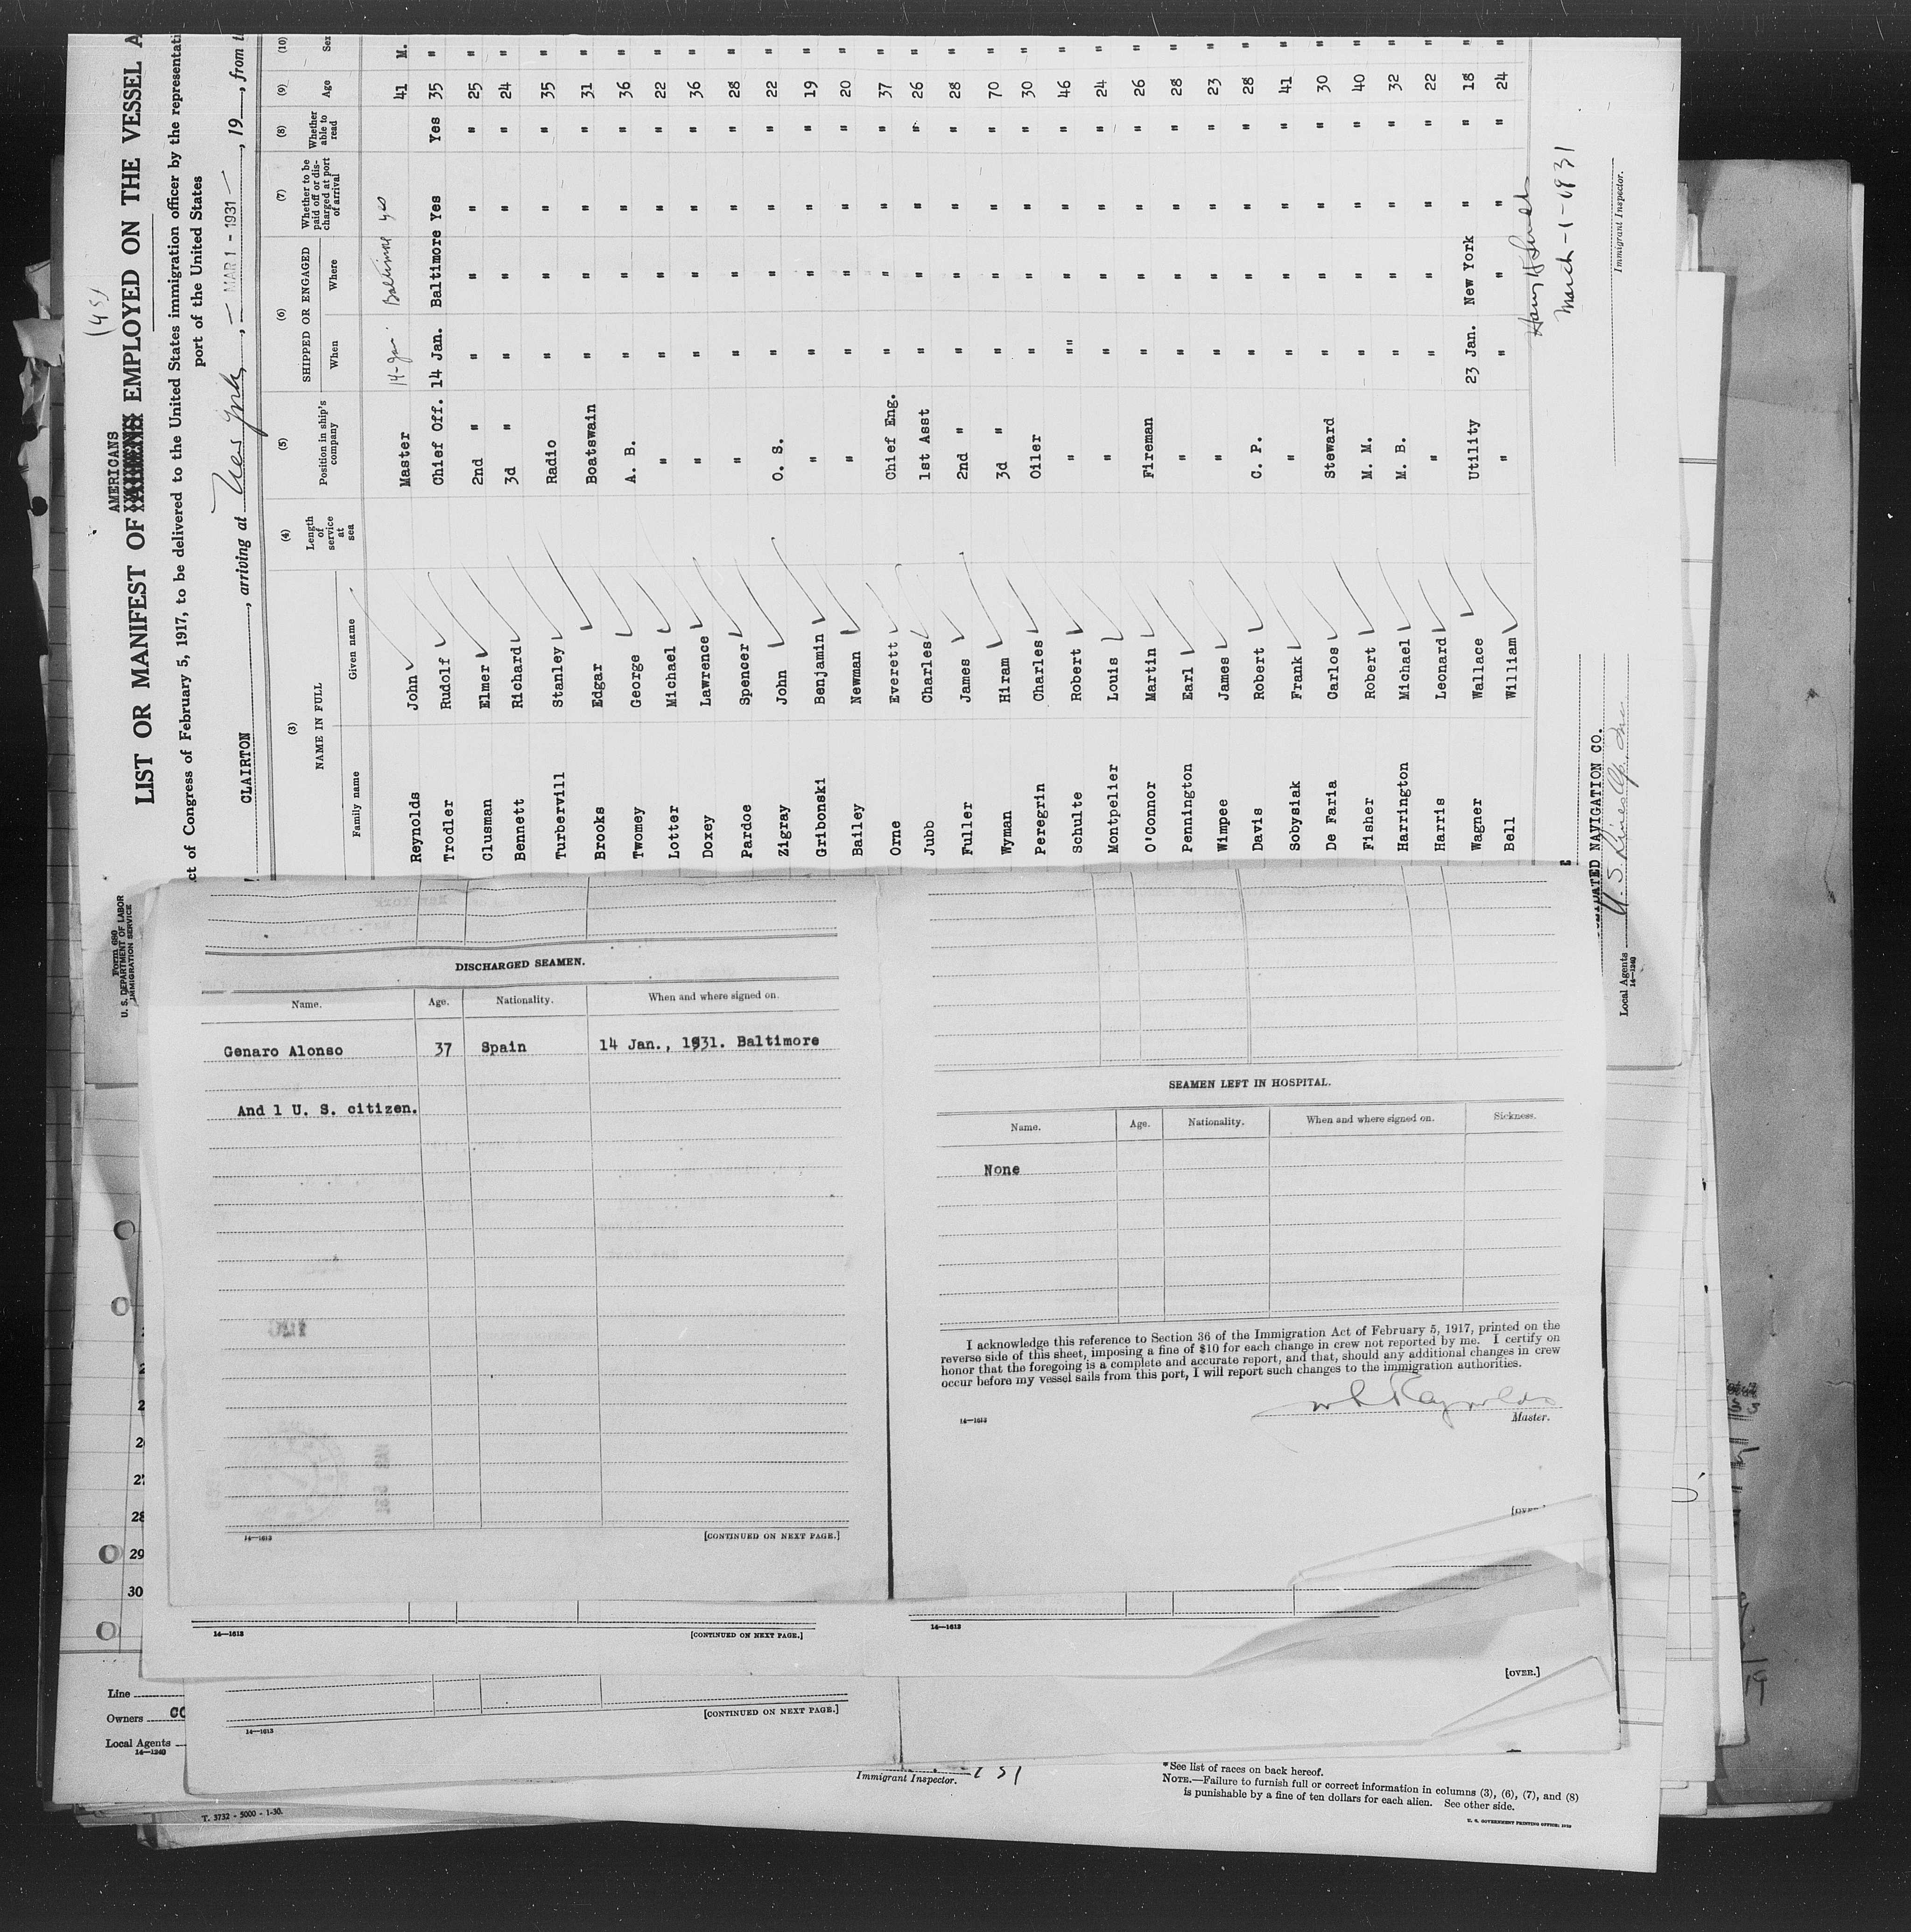 (45)
AMERICANS
LIST OR MANIFEST OF XXXXXX EMPLOYED ON THE VESSEL A
ct of Congress of February 5, 1917, to be delivered to the United States immigration officer by the representati
port of the United States
CLAIRTON, arriving at New York, MAR 1 - 1931, 19, from t
(3) (4) (5) (6) (7) (8) (9) (10)
NAME IN FULL Length of service at sea Position in ship's company SHIPPED OR ENGAGED Whether to be paid off or discharged at port of arrival Whether able to read Age Sex
Family name Given name When Where
Reynolds John Master 14-Jan. Baltimore yes 41 M.
Trodler Rudolf Chief Off. 14 Jan. Baltimore Yes Yes 35 "
Clusman Elmer 2nd " " " " " 25 "
Bennett Richard 3d " " " " " 24 "
Turbervill Stanley Radio " " " " 35 "
Brooks Edgar Boatswain " " " " 31 "
Twomey George A. B. " " " " 36 "
Lotter Michael " " " " " 22 "
Doxey Lawrence " " " " " 36 "
Pardoe Spencer " " " " " 28 "
Zigray John O. S. " " " " 22 "
Gribonski Benjamin " " " " " 19 "
Bailey Newman " " " " " 20 "
Orne Everett Chief Eng. " " " " 37 "
Jubb Charles 1st Asst " " " " 26 "
Fuller James 2nd " " " " " 28 "
Wyman Hiram 3d " " " " " 70 "
Peregrin Charles Oiler " " " " 30 "
Schulte Robert " "" " " " 46 "
Montpelier Louis " " " " " 24 "
O'Connor Martin Fireman " " " " 26 "
Pennington Earl " " " " " 28 "
Wimpee James " " " " " 23 "
Davis Robert C. P. " " " " 28 "
Sobysiak Frank " " " " " 41 "
De Faria Carlos Steward " " " " 30 "
Fisher Robert M. M. " " " " 40 "
Harrington Michael M. B. " " " " 32 "
Harris Leonard " " " " " 22 "
Wagner Wallace Utility 23 Jan. New York " " 18 "
Bell William " " " " " 24 "
March-1-1931
Immigrant Inspector.
IDATED NAVIGATION CO.
Local Agents
14—1240
Form 690
U. S. DEPARTMENT OF LABOR
IMMIGRATION SERVICE
DISCHARGED SEAMEN.
Name. Age. Nationality. When and where signed on.
Genaro Alonso 37 Spain 14 Jan., 1931. Baltimore
And 1 U. S. citizen.
14—1613 [CONTINUED ON NEXT PAGE.]
SEAMEN LEFT IN HOSPITAL.
Name. Age. Nationality. When and where signed on. Sickness.
None
I acknowledge this reference to Section 36 of the Immigration Act of February 5, 1917, printed on the
reverse side of this sheet, imposing a fine of $10 for each change in crew not reported by me. I certify on
honor that the foregoing is a complete and accurate report, and that, should any additional changes in crew
occur before my vessel sails from this port, I will report such changes to the immigration authorities.
Reynolds
14—1613 Master.
[OVER.]
28
29
30
14—1613 [CONTINUED ON NEXT PAGE.]
14—1613
[OVER.]
Line
Owners CO
Local Agents
14—1240
14—1613 [CONTINUED ON NEXT PAGE.]
Immigrant Inspector.
*See list of races on back hereof.
NOTE.—Failure to furnish full or correct information in columns (3), (6), (7), and (8)
is punishable by a fine of ten dollars for each alien. See other side.
U. S. GOVERNMENT PRINTING OFFICE: 1930
T. 3732 - 5000 - 1-30.